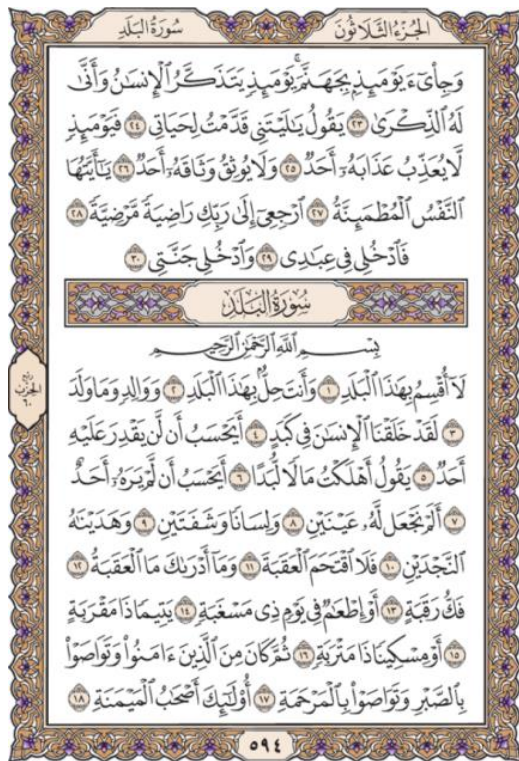 سُورَةُ البَلَدِ
الجُزْءُ الثَّلَاثُونَ
وَجِاْىٓءَ يَوْمَئِذِۭ بِجَهَنَّمَۚ يَوْمَئِذٖ يَتَذَكَّرُ ٱلْإِنسَٰنُ وَأَنَّىٰ
لَهُ ٱلذِّكْرَىٰ ٢٣ يَقُولُ يَٰلَيْتَنِي قَدَّمْتُ لِحَيَاتِي ٢٤ فَيَوْمَئِذٖ
لَّا يُعَذِّبُ عَذَابَهُۥٓ أَحَدٞ ٢٥ وَلَا يُوثِقُ وَثَاقَهُۥٓ أَحَدٞ ٢٦ يَٰٓأَيَّتُهَا
ٱلنَّفْسُ ٱلْمُطْمَئِنَّةُ ٢٧ ٱرْجِعِيٓ إِلَىٰ رَبِّكِ رَاضِيَةٗ مَّرْضِيَّةٗ ٢٨
فَٱدْخُلِي فِي عِبَٰدِي ٢٩ وَٱدْخُلِي جَنَّتِي ٣٠
سُورَةُ البَلَدِ
بِسْمِ ٱللَّهِ ٱلرَّحْمَٰنِ ٱلرَّحِيمِ
لَآ أُقْسِمُ بِهَٰذَا ٱلْبَلَدِ ١ وَأَنتَ حِلُّۢ بِهَٰذَا ٱلْبَلَدِ ٢ وَوَالِدٖ وَمَا وَلَدَ
٣ لَقَدْ خَلَقْنَا ٱلْإِنسَٰنَ فِي كَبَدٍ ٤ أَيَحْسَبُ أَن لَّن يَقْدِرَ عَلَيْهِ
أَحَدٞ ٥ يَقُولُ أَهْلَكْتُ مَالٗا لُّبَدًا ٦ أَيَحْسَبُ أَن لَّمْ يَرَهُۥٓ أَحَدٌ
٧ أَلَمْ نَجْعَل لَّهُۥ عَيْنَيْنِ ٨ وَلِسَانٗا وَشَفَتَيْنِ ٩ وَهَدَيْنَٰهُ
ٱلنَّجْدَيْنِ ١٠ فَلَا ٱقْتَحَمَ ٱلْعَقَبَةَ ١١ وَمَآ أَدْرَىٰكَ مَا ٱلْعَقَبَةُ ١٢
فَكُّ رَقَبَةٍ ١٣ أَوْ إِطْعَٰمٞ فِي يَوْمٖ ذِي مَسْغَبَةٖ ١٤ يَتِيمٗا ذَا مَقْرَبَةٍ
١٥ أَوْ مِسْكِينٗا ذَا مَتْرَبَةٖ ١٦ ثُمَّ كَانَ مِنَ ٱلَّذِينَ ءَامَنُواْ وَتَوَاصَوْاْ
بِٱلصَّبْرِ وَتَوَاصَوْاْ بِٱلْمَرْحَمَةِ ١٧ أُوْلَٰٓئِكَ أَصْحَٰبُ ٱلْمَيْمَنَةِ ١٨
ربع
الحزب
٦٠
٥٩٤